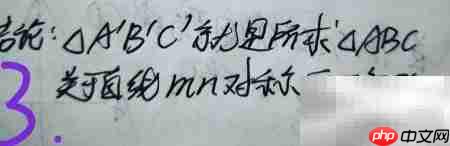 结论:△A'B'C'就是所求△ABC
关于直线mn对称
3.
php 中文网